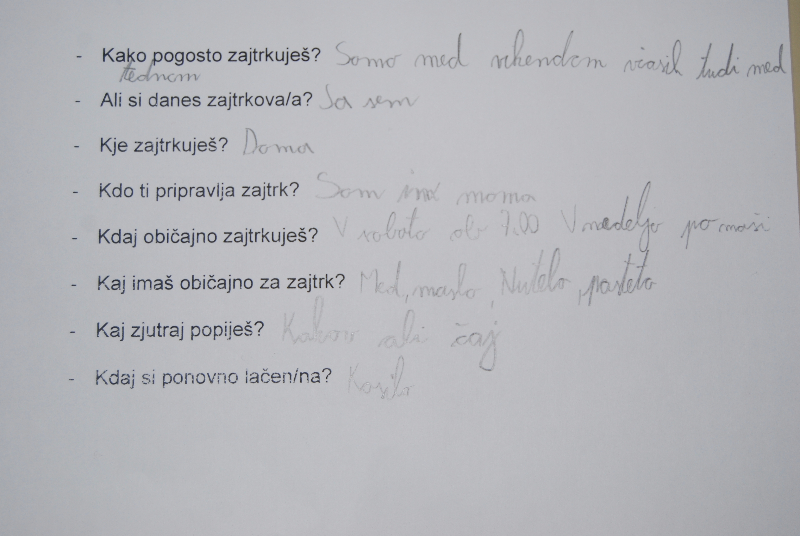 - Kako pogosto zajtrkuješ? Samo med vikendom včasih tudi med
tednom
- Ali si danes zajtrkova/a? Ja sem
- Kje zajtrkuješ? Doma
- Kdo ti pripravlja zajtrk? Sam in mama
- Kdaj običajno zajtrkuješ? V soboto ob 7.00 V nedeljo po maši
- Kaj imaš običajno za zajtrk? Med, maslo, Nutelo, pašteto
- Kaj zjutraj popiješ? Kakav ali čaj
- Kdaj si ponovno lačen/na? Kosilo